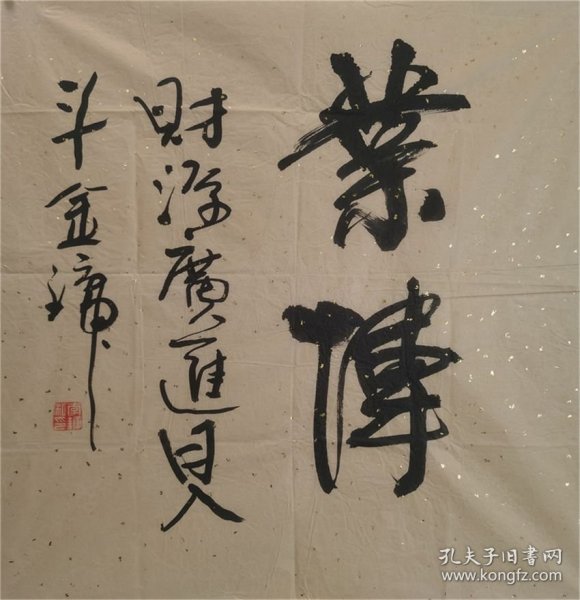 業偉
財源廣進日入
斗金鏞
孔夫子旧书网
www.kongfz.com